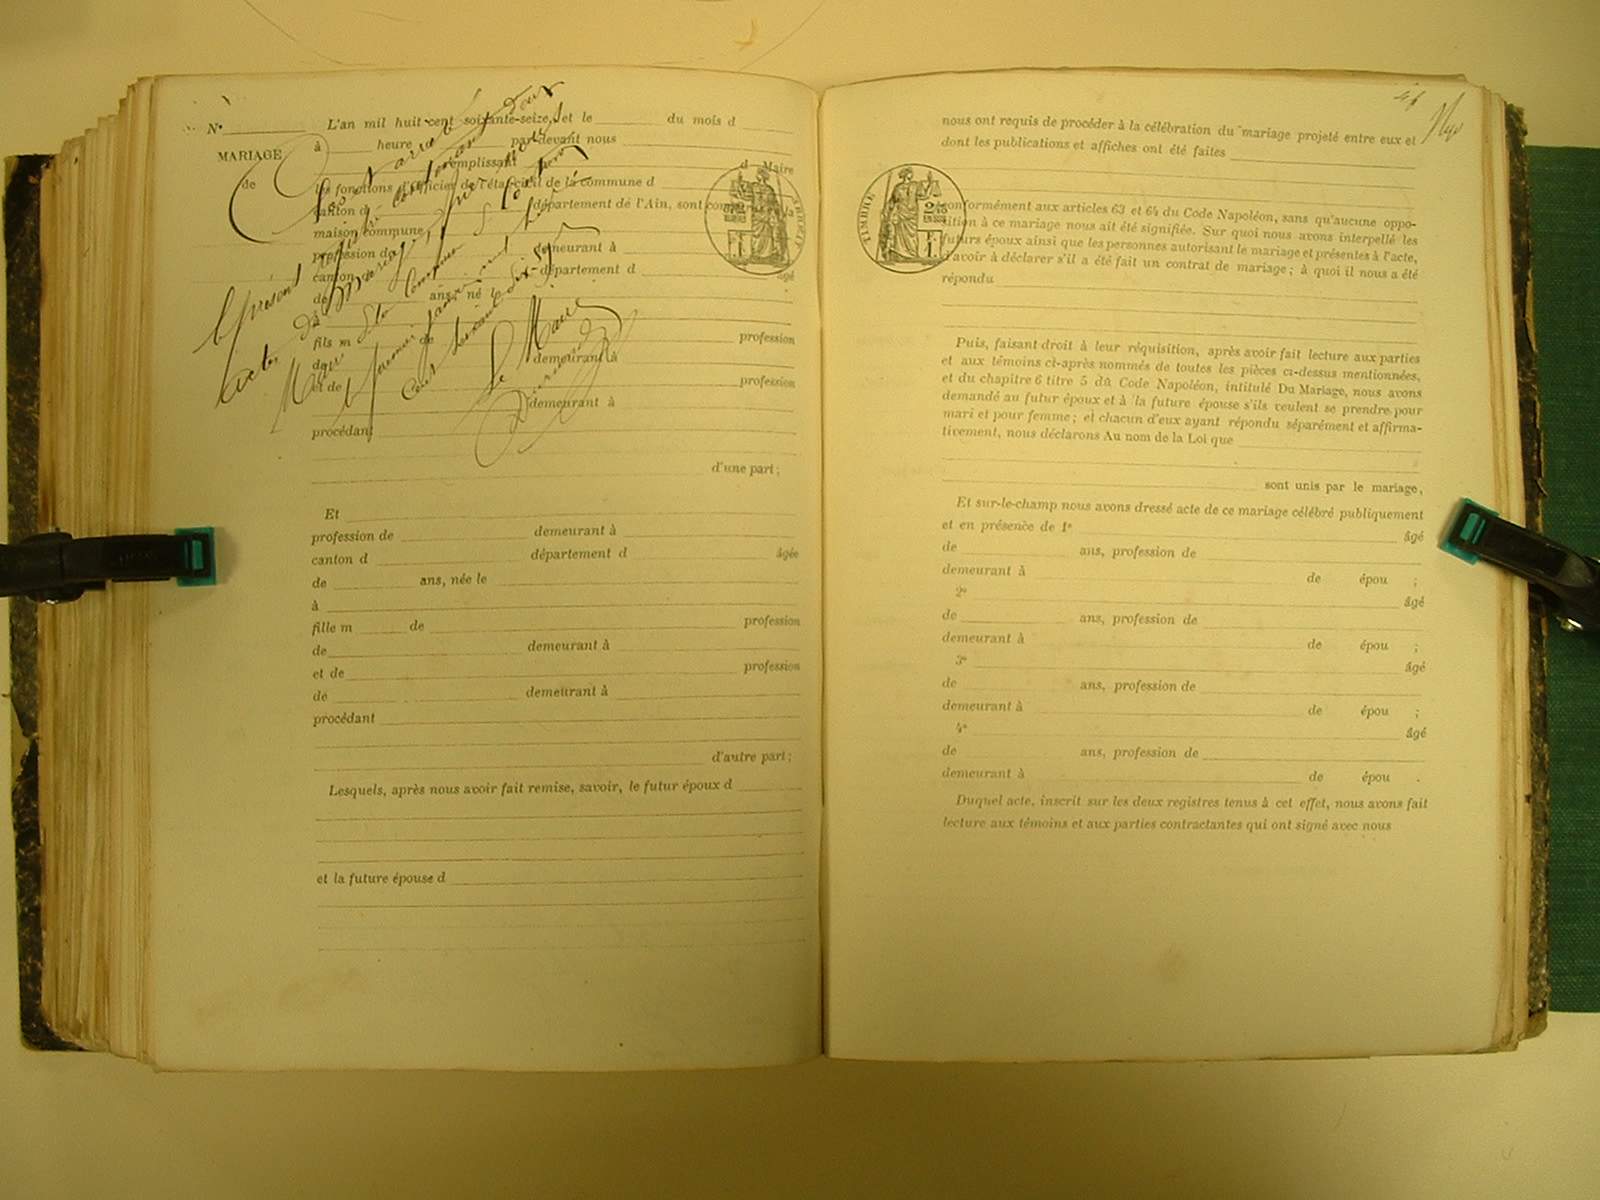 N°
MARIAGE
de
L'an mil huit cent soixante-seize, et le du mois d
à heure par-devant nous
remplissant d Maire
les fonctions d'Officier de l'état civil de la commune d
canton d département de l'Ain, sont comparus la
maison commune
profession d demeurant à
canton d département d âgé
de ans, né le
à
fils m de profession
de demeurant à
et de profession
demeurant à
procédant
d'une part;
Clos et arrêté
le présent
contenant deux
actes de Mariage, par nous
Maire de la Commune de
le premier janvier mil huit
cent soixante dix sept
Le Maire
Et
profession de demeurant à
canton d département d âgée
de ans, née le
à
fille m de profession
de demeurant à
et de profession
de demeurant à
procédant
d'autre part;
Lesquels, après nous avoir fait remise, savoir, le futur époux d
et la future épouse d
nous ont requis de procéder à la célébration du mariage projeté entre eux et
dont les publications et affiches ont été faites
TIMBRE
conformément aux articles 63 et 64 du Code Napoléon, sans qu'aucune oppo-
sition à ce mariage nous ait été signifiée. Sur quoi nous avons interpellé les
futurs époux ainsi que les personnes autorisant le mariage et présentes à l'acte,
d'avoir à déclarer s'il a été fait un contrat de mariage; à quoi il nous a été
répondu
Puis, faisant droit à leur réquisition, après avoir fait lecture aux parties
et aux témoins ci-après nommés de toutes les pièces ci-dessus mentionnées,
et du chapitre 6 titre 5 du Code Napoléon, intitulé Du Mariage, nous avons
demandé au futur époux et à la future épouse s'ils veulent se prendre pour
mari et pour femme; et chacun d'eux ayant répondu séparément et affirma-
tivement, nous déclarons Au nom de la Loi que
sont unis par le mariage,
Et sur-le-champ nous avons dressé acte de ce mariage célébré publiquement
et en présence de 1° âgé
de ans, profession de
demeurant à de épou ;
2° âgé
de ans, profession de
demeurant à de épou ;
3° âgé
de ans, profession de
demeurant à de épou ;
4° âgé
de ans, profession de
demeurant à de épou .
Duquel acte, inscrit sur les deux registres tenus à cet effet, nous avons fait
lecture aux témoins et aux parties contractantes qui ont signé avec nous